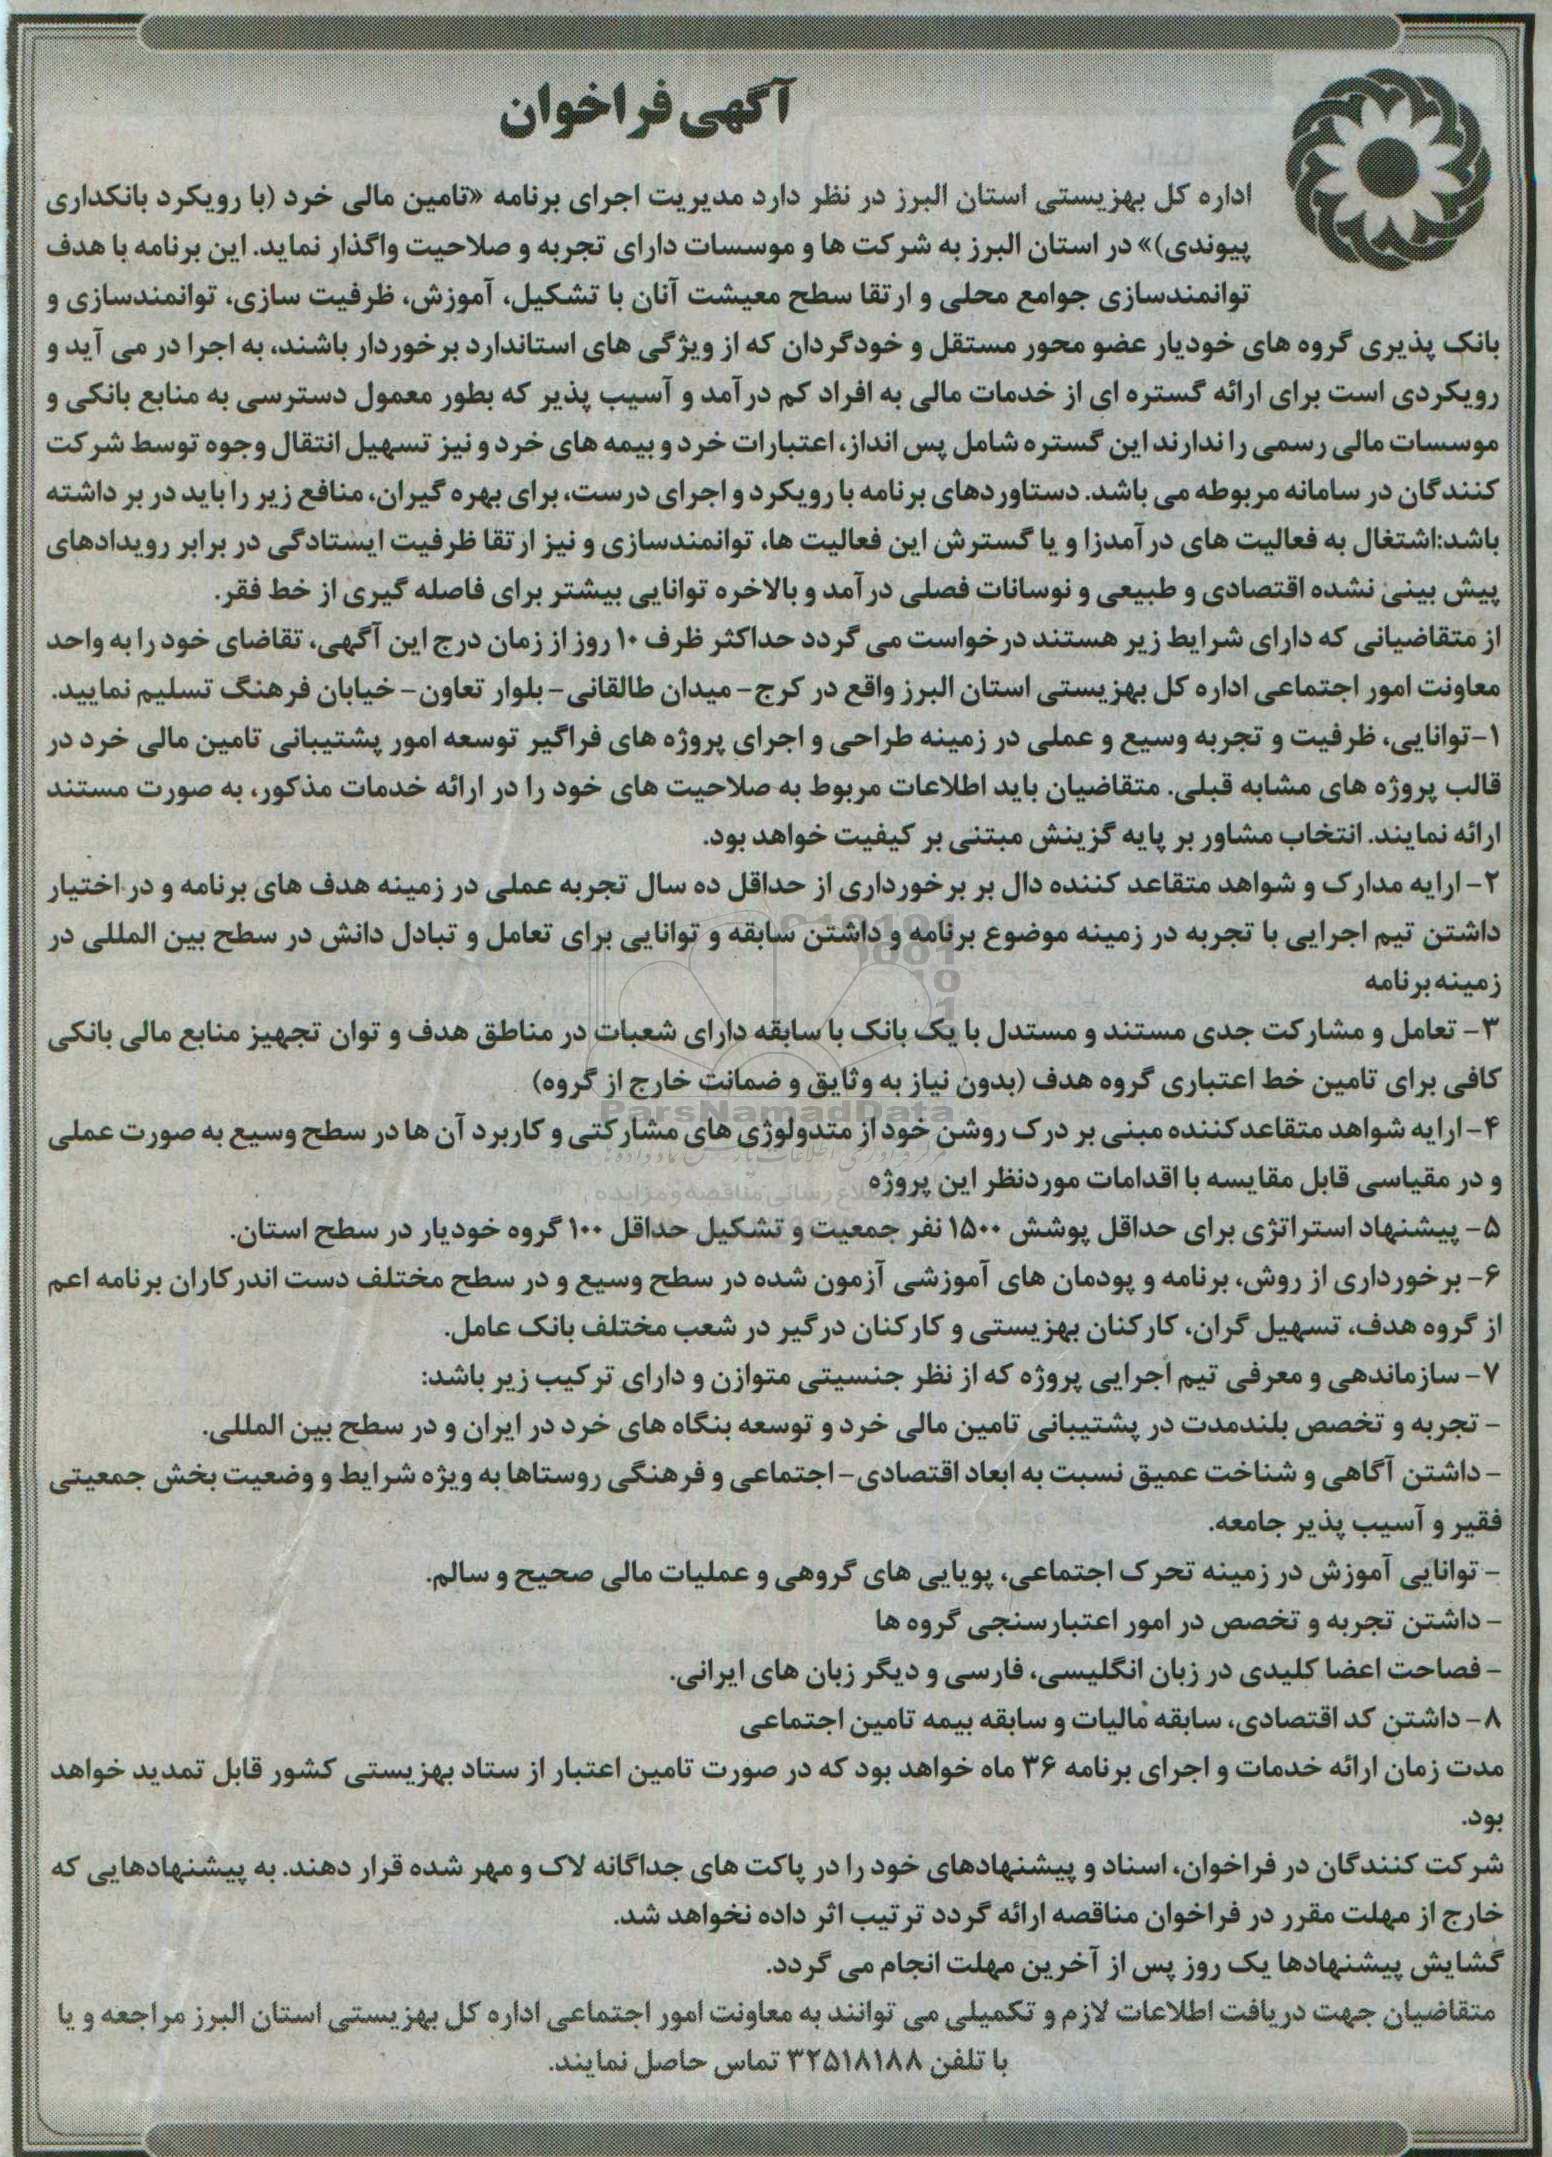 آگهی فراخوان
اداره کل بهزیستی استان البرز در نظر دارد مدیریت اجرای برنامه «تامین مالی خرد (با رویکرد بانکداری
پیوندی)» در استان البرز به شرکت ها و موسسات دارای تجربه و صلاحیت واگذار نماید. این برنامه با هدف
توانمندسازی جوامع محلی و ارتقا سطح معیشت آنان با تشکیل، آموزش، ظرفیت سازی، توانمندسازی و
بانک پذیری گروه های خودیار عضو محور مستقل و خودگردان که از ویژگی های استاندارد برخوردار باشند، به اجرا در می آید و
رویکردی است برای ارائه گستره ای از خدمات مالی به افراد کم درآمد و آسیب پذیر که بطور معمول دسترسی به منابع بانکی و
موسسات مالی رسمی را ندارند این گستره شامل پس انداز، اعتبارات خرد و بیمه های خرد و نیز تسهیل انتقال وجوه توسط شرکت
کنندگان در سامانه مربوطه می باشد. دستاوردهای برنامه با رویکرد و اجرای درست، برای بهره گیران، منافع زیر را باید در بر داشته
باشد:اشتغال به فعالیت های درآمدزا و یا گسترش این فعالیت ها، توانمندسازی و نیز ارتقا ظرفیت ایستادگی در برابر رویدادهای
پیش بینی نشده اقتصادی و طبیعی و نوسانات فصلی درآمد و بالاخره توانایی بیشتر برای فاصله گیری از خط فقر.
از متقاضیانی که دارای شرایط زیر هستند درخواست می گردد حداکثر ظرف ۱۰ روز از زمان درج این آگهی، تقاضای خود را به واحد
معاونت امور اجتماعی اداره کل بهزیستی استان البرز واقع در کرج- میدان طالقانی- بلوار تعاون- خیابان فرهنگ تسلیم نمایید.
۱-توانایی، ظرفیت و تجربه وسیع و عملی در زمینه طراحی و اجرای پروژه های فراگیر توسعه امور پشتیبانی تامین مالی خرد در
قالب پروژه های مشابه قبلی. متقاضیان باید اطلاعات مربوط به صلاحیت های خود را در ارائه خدمات مذکور، به صورت مستند
ارائه نمایند. انتخاب مشاور بر پایه گزینش مبتنی بر کیفیت خواهد بود.
۲- ارایه مدارک و شواهد متقاعد کننده دال بر برخورداری از حداقل ده سال تجربه عملی در زمینه هدف های برنامه و در اختیار
داشتن تیم اجرایی با تجربه در زمینه موضوع برنامه و داشتن سابقه و توانایی برای تعامل و تبادل دانش در سطح بین المللی در
زمینه برنامه
۳- تعامل و مشارکت جدی مستند و مستدل با یک بانک با سابقه دارای شعبات در مناطق هدف و توان تجهیز منابع مالی بانکی
کافی برای تامین خط اعتباری گروه هدف (بدون نیاز به وثایق و ضمانت خارج از گروه)
ParsNamadData
۴-ارایه شواهد متقاعدکننده مبنی بر درک روشن خود از متدولوژی های مشارکتی و کاربرد آن ها در سطح وسیع به صورت عملی
و در مقیاسی قابل مقایسه با اقدامات موردنظر این پروژه
۵- پیشنهاد استراتژی برای حداقل پوشش ۱۵۰۰ نفر جمعیت و تشکیل حداقل ۱۰۰ گروه خودیار در سطح استان.
۶- برخورداری از روش، برنامه و پودمان های آموزشی آزمون شده در سطح وسیع و در سطح مختلف دست اندرکاران برنامه اعم
از گروه هدف، تسهیل گران، کارکنان بهزیستی و کارکنان درگیر در شعب مختلف بانک عامل.
۷- سازماندهی و معرفی تیم اجرایی پروژه که از نظر جنسیتی متوازن و دارای ترکیب زیر باشد:
- تجربه و تخصص بلندمدت در پشتیبانی تامین مالی خرد و توسعه بنگاه های خرد در ایران و در سطح بین المللی.
- داشتن آگاهی و شناخت عمیق نسبت به ابعاد اقتصادی- اجتماعی و فرهنگی روستاها به ویژه شرایط و وضعیت بخش جمعیتی
فقیر و آسیب پذیر جامعه.
- توانایی آموزش در زمینه تحرک اجتماعی، پویایی های گروهی و عملیات مالی صحیح و سالم.
- داشتن تجربه و تخصص در امور اعتبارسنجی گروه ها
- فصاحت اعضا کلیدی در زبان انگلیسی، فارسی و دیگر زبان های ایرانی.
۸- داشتن کد اقتصادی، سابقه مالیات و سابقه بیمه تامین اجتماعی
مدت زمان ارائه خدمات و اجرای برنامه ۳۶ ماه خواهد بود که در صورت تامین اعتبار از ستاد بهزیستی کشور قابل تمدید خواهد
بود.
شرکت کنندگان در فراخوان، اسناد و پیشنهادهای خود را در پاکت های جداگانه لاک و مهر شده قرار دهند. به پیشنهادهایی که
خارج از مهلت مقرر در فراخوان مناقصه ارائه گردد ترتیب اثر داده نخواهد شد.
گشایش پیشنهادها یک روز پس از آخرین مهلت انجام می گردد.
متقاضیان جهت دریافت اطلاعات لازم و تکمیلی می توانند به معاونت امور اجتماعی اداره کل بهزیستی استان البرز مراجعه و یا
با تلفن ۳۲۵۱۸۱۸۸ تماس حاصل نمایند.